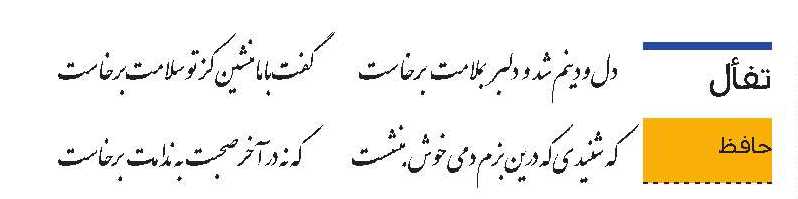 تفأل
حافظ
دل و دینم شد و دلبر بملامت برخاست
گفت با ما منشین کز تو سلامت برخاست
که شنیدی که درین بزم دمی خوش بنشست
که نه در آخر صحبت به ندامت برخاست